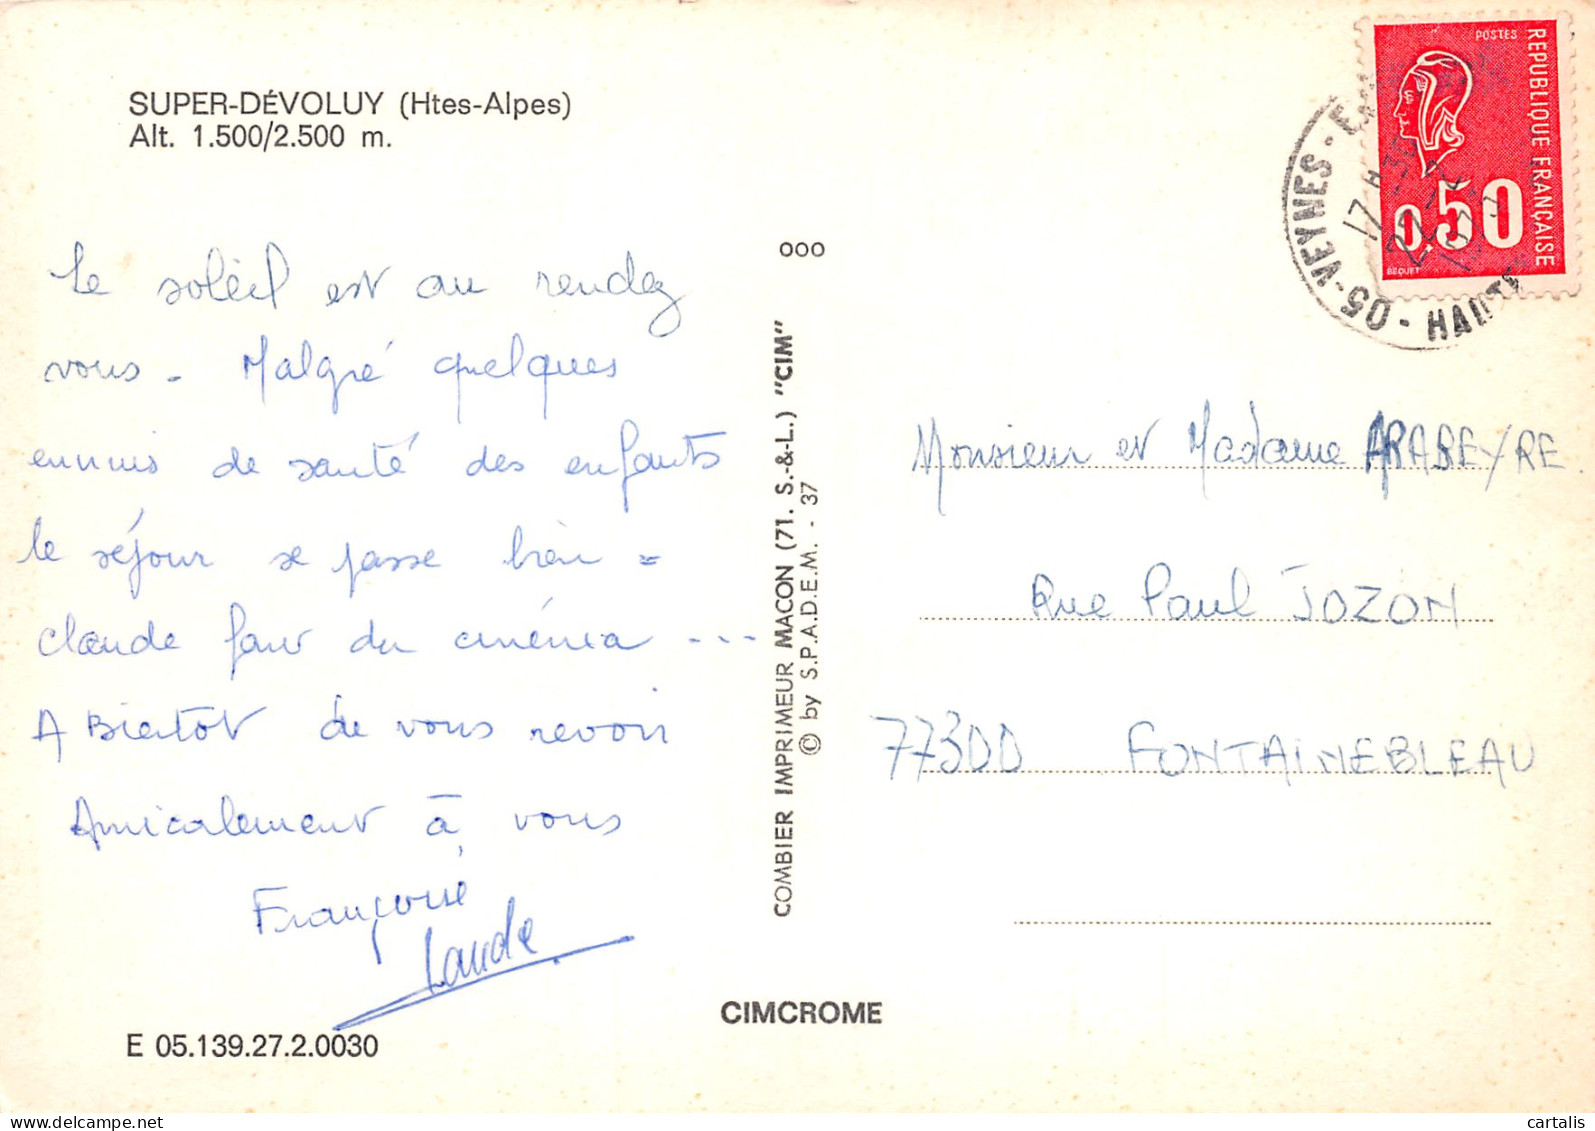 SUPER-DÉVOLUY (Htes-Alpes)
Alt. 1.500/2.500 m.
Le soleil est au rendez
vous - Malgré quelques
ennuis de santé des enfants
le séjour se passe bien =
Claude fait du cinéma ...
A Bientôt de vous revoir
Amicalement à vous
Françoise
Claude
E 05.139.27.2.0030
ooo
COMBIER IMPRIMEUR MACON (71. S.-&-L.) "CIM"
© by S.P.A.D.E.M. - 37
CIMCROME
POSTES
REPUBLIQUE FRANÇAISE
0,50
BEQUET
05-VEYNES-
HAUTES
17 H 30
22-2
Monsieur et Madame ARABEYRE
Rue Paul JOZON
77300 FONTAINEBLEAU
cartalis